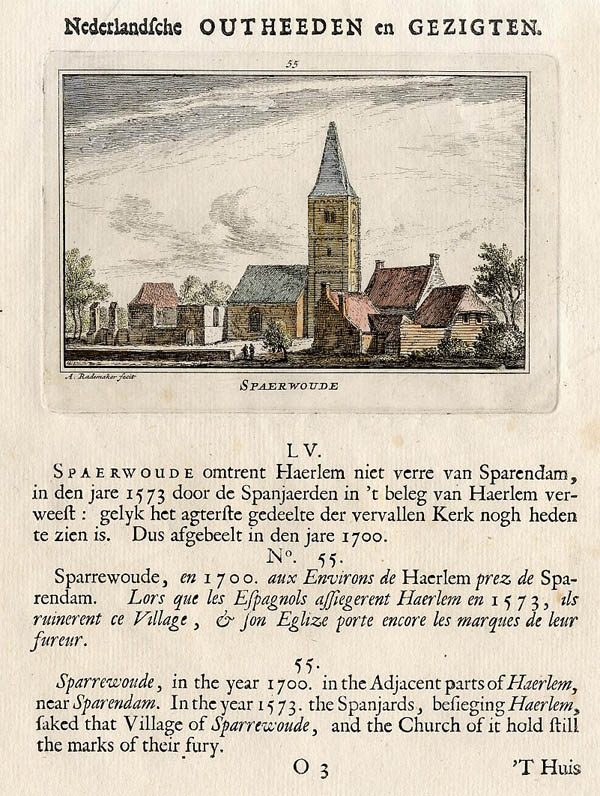 Nederlandſche OUTHEEDEN en GEZIGTEN.
55
A. Rademaker fecit
SPAERWOUDE
LV.
SPAERWOUDE omtrent Haerlem niet verre van Sparendam,
in den jare 1573 door de Spanjaerden in 't beleg van Haerlem ver-
weeſt: gelyk het agterſte gedeelte der vervallen Kerk nogh heden
te zien is. Dus afgebeelt in den jare 1700.
Nº. 55.
Sparrewoude, en 1700. aux Environs de Haerlem prez de Spa-
rendam. Lors que les Eſpagnols aſſiegerent Haerlem en 1573, ils
ruinerent ce Village, & ſon Eglize porte encore les marques de leur
fureur.
55.
Sparrewoude, in the year 1700. in the Adjacent parts of Haerlem,
near Sparendam. In the year 1573. the Spanjards, beſieging Haerlem,
ſaked that Village of Sparrewoude, and the Church of it hold ſtill
the marks of their fury.
O 3 'T Huis